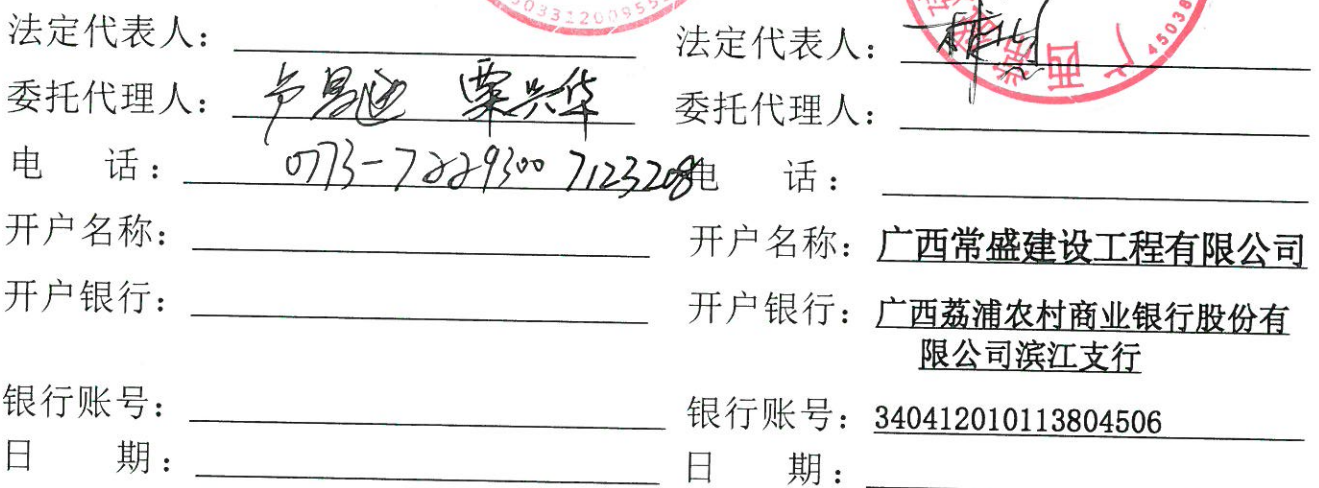 法定代表人：
委托代理人： 栗兴华
电 话： 0773-7229300 7123208
开户名称：
开户银行：
银行账号：
日 期：
法定代表人：
委托代理人：
电 话：
开户名称：广西常盛建设工程有限公司
开户银行：广西荔浦农村商业银行股份有
限公司滨江支行
银行账号：340412010113804506
日 期：